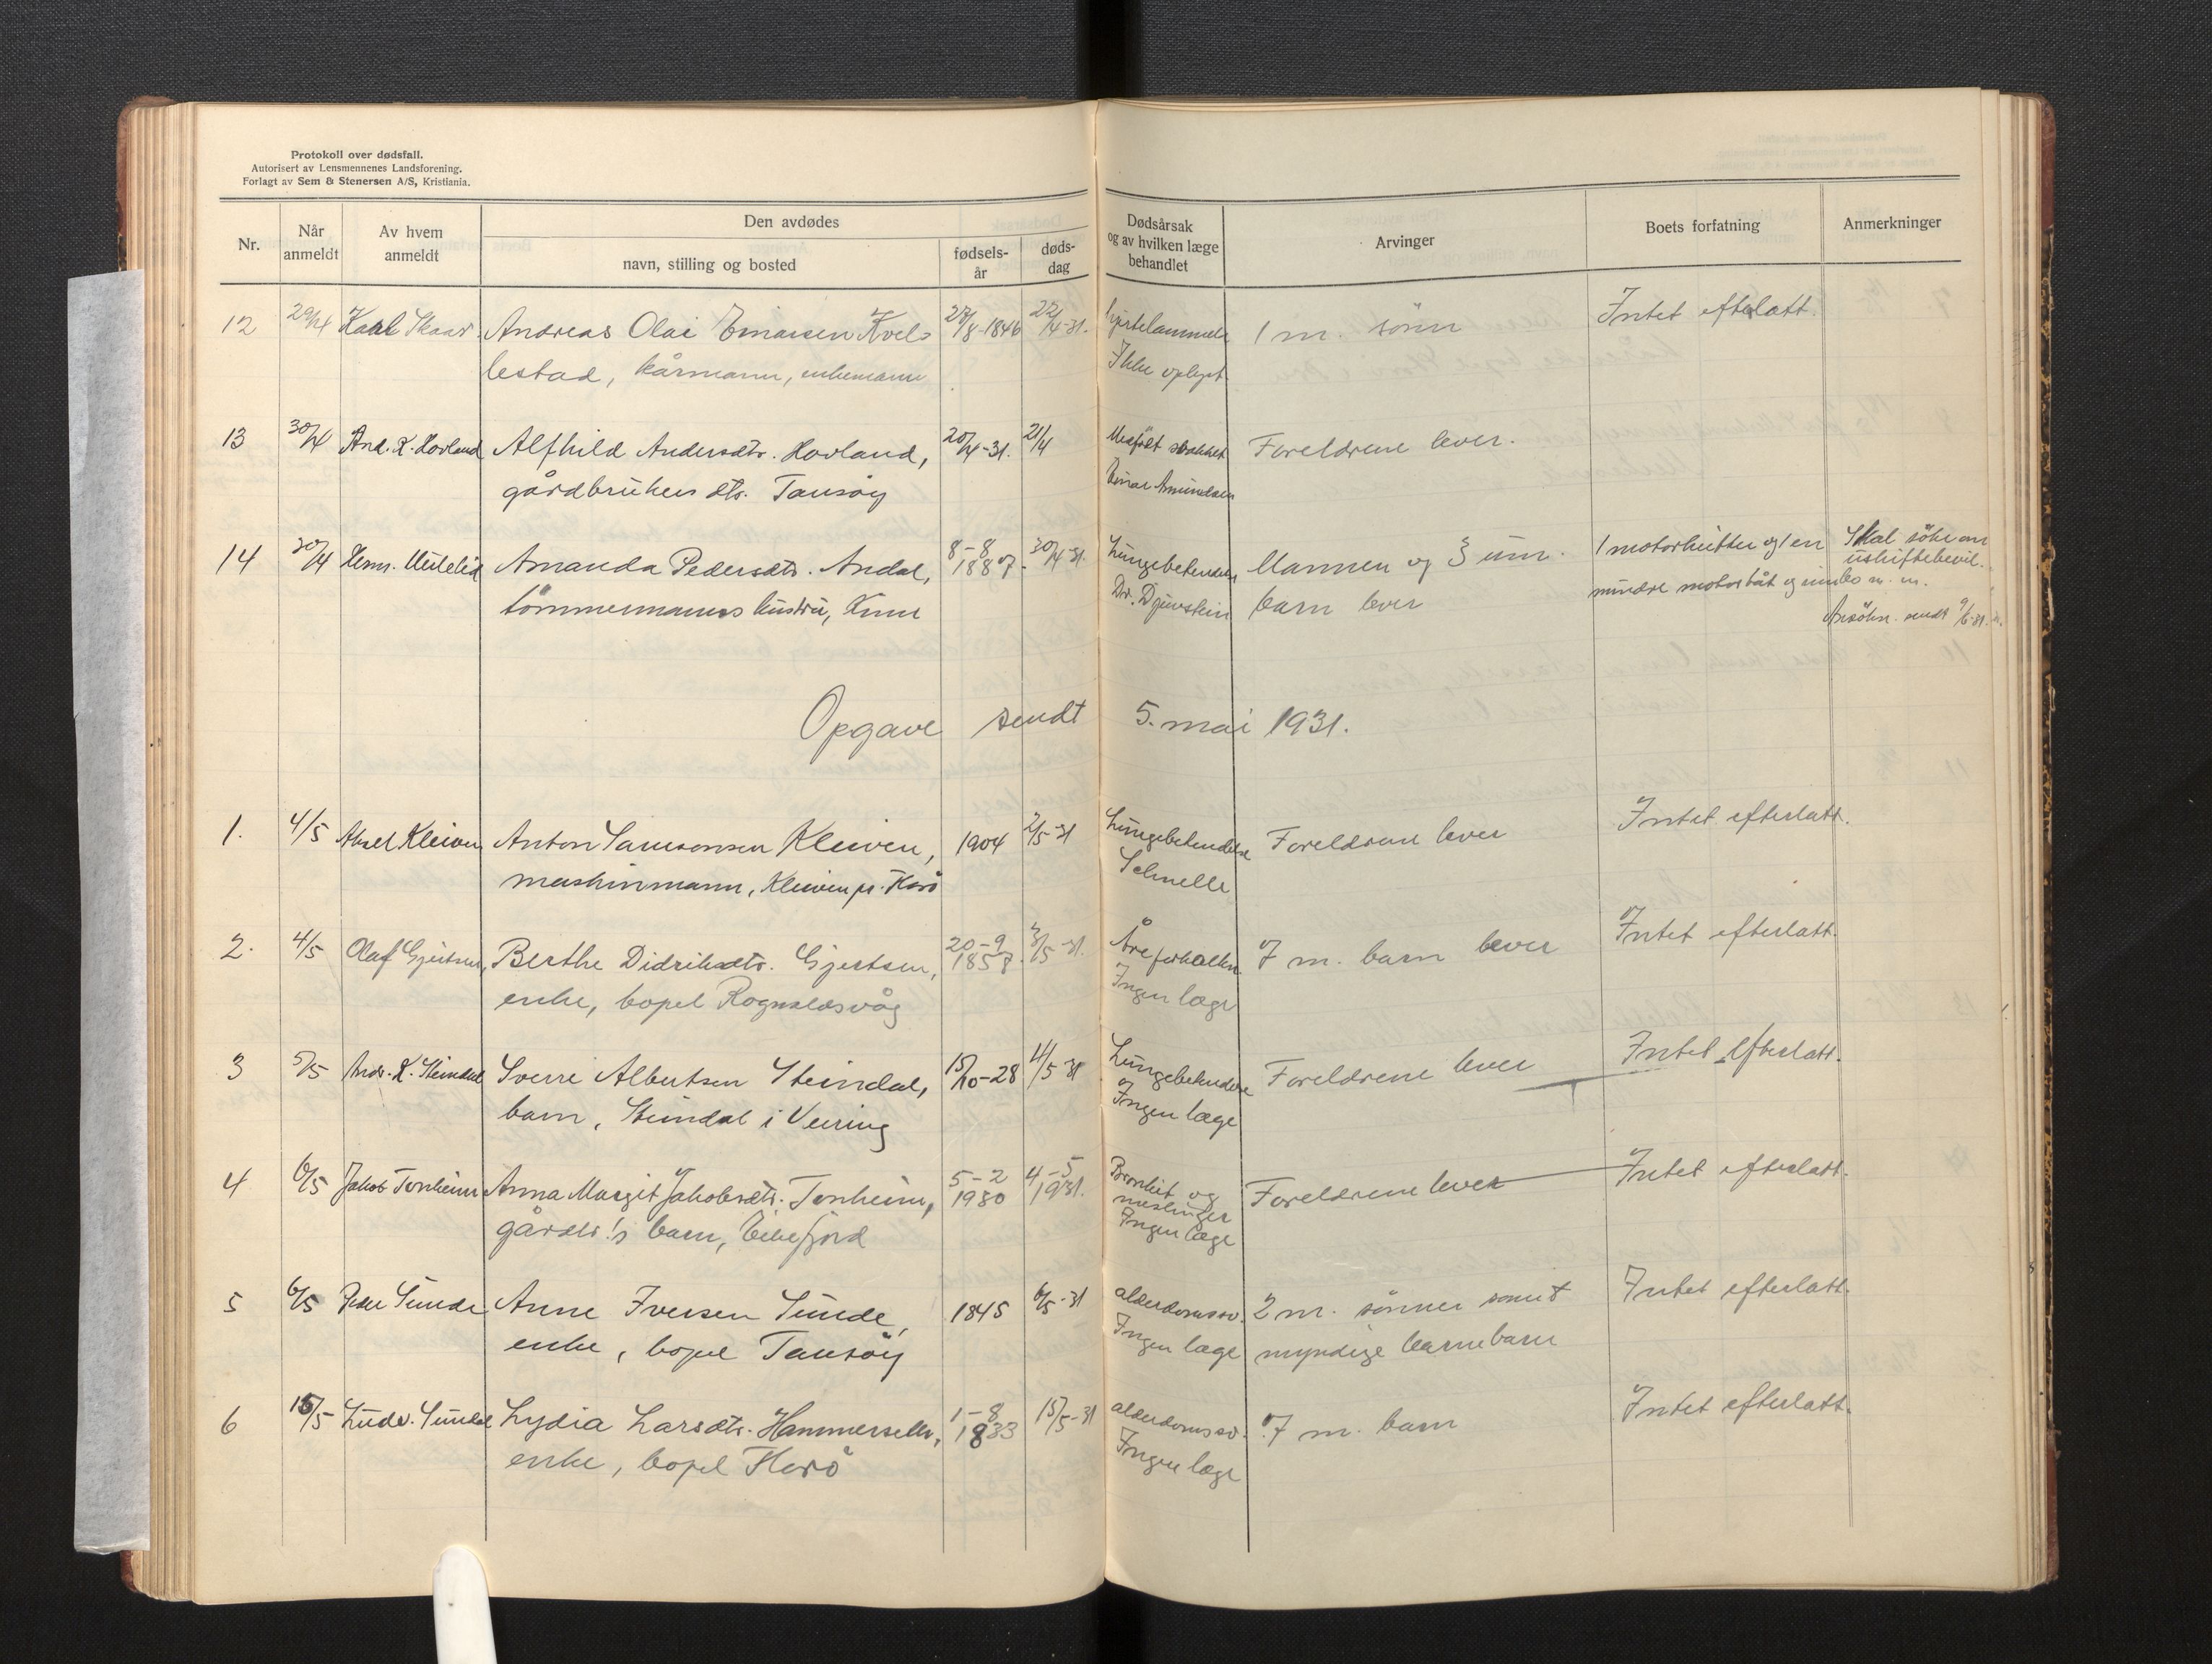 Protokoll over dødsfall.
Autorisert av Lensmennenes Landsforening.
Forlagt av Sem & Stenersen A/S, Kristiania.
Nr.
Når anmeldt
Av hvem anmeldt
Den avdødes
navn, stilling og bosted
fødsels-år
døds-dag
Dødsårsak og av hvilken læge behandlet
Arvinger
Boets forfatning
Anmerkninger
12 29/4 Karl Skaar. Andreas Olai Einarsen Kvel- 27/8-1846 22/4-31. hjertelammelse 1 m. sönn Intet efterlatt.
lestad, kårmann, enkemann Ikke oplyst
13 30/4 And. K. Hovland Alfhild Andersdtr. Hovland, 20/4-31. 21/4 Medfödt svakhet Foreldrene lever.
gårdbrukers dtr. Tansöy Einar Amundsen
14 30/4 Amanda Pedersdtr. Andal, 8-8 1887. 30/4-31. Lungebetendelse Mannen og 3 um. 1 motorkutter og 1 en Skal söke om
tömmermanns hustru, Kinn Dr. barn lever mindre motorbåt og innbo m. m. uskiftebevil.
Ansökn. sendt 9/6-31.
Opgave sendt 5. mai 1931.
1. 4/5 Aksel Kleiven Anton Samsonsen Kleiven, 1904 2/5-31 Lungebetendelse Foreldrene lever Intet efterlatt.
maskinmann, Kleiven pr. Florö Schnelle
2. 4/5 Olaf Gjertsen, Berthe Didriksdtr. Gjertsen, 20-9 1858. 3/5-31. Åreforkalkn. 7 m. barn lever Intet efterlatt.
enke, bopel Rognaldsvåg Ingen læge
3 5/5 Andr. K. Steindal Sverre Albertsen Steindal, 15/10-28 4/5-31 Lungebetendelse Foreldrene lever Intet efterlatt.
barn, Steindal i Vevring Ingen læge
4 6/5 Jakob Tonheim Anna Margit Jakobsdtr. Tonheim, 5-2 1930 4-5 1931. Bronkit og meslinger Foreldrene lever Intet efterlatt.
gårdbr.'s barn, Eikefjord Ingen læge
5 6/5 Peder Sunde Anne Iversen Sunde, 1845 6/5-31 alderdomssv. 2 m. sönner samt Intet efterlatt.
enke, bopel Tansöy Ingen læge myndige barnebarn
6 15/5 Ludv. Sundal Lydia Larsdtr. Hammerseth, 1-8 1833 15/5-31 alderdomssv. 7 m. barn Intet efterlatt.
enke, bopel Florö Ingen læge